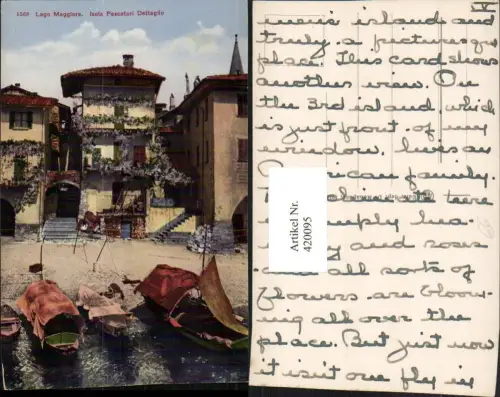 1569 Lago Maggiore. Isola Pescatori Dettaglio
V
men's island and
truly a picturesque
place. This card shows
another view. On
the 3rd island, which
is just front of my
window, lives an
American family.
here
is simply hea-
and roses
all sorts of
flowers are bloom-
ing all over the
place. But just now
it isn't one fly is
Artikel Nr.
420095